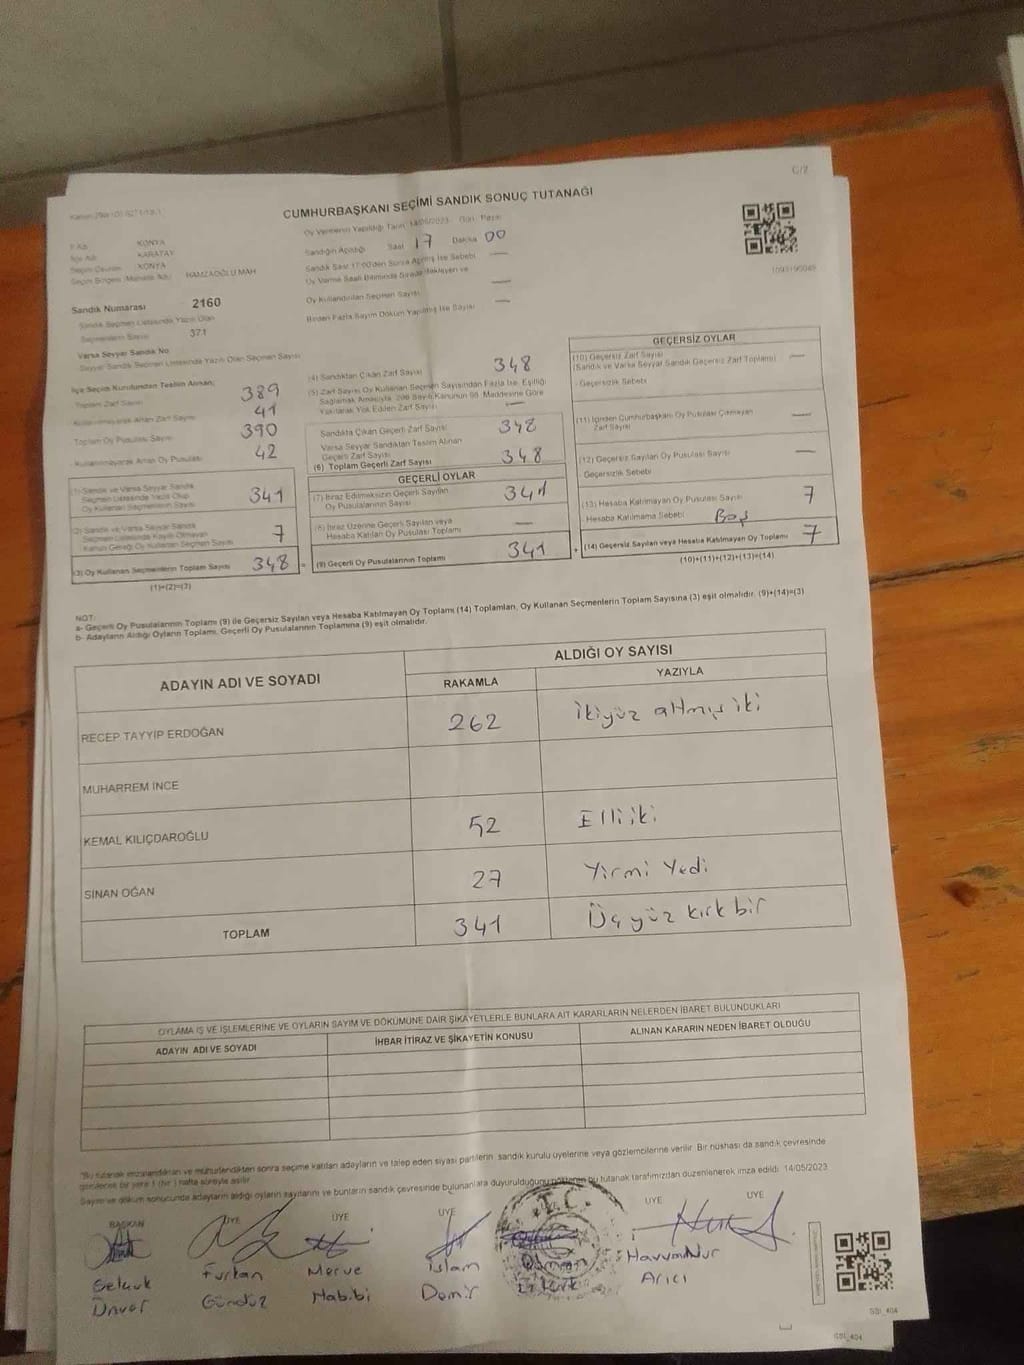 C/2
CUMHURBAŞKANI SEÇİMİ SANDIK SONUÇ TUTANAĞI
Oy Vermenin Yapıldığı Tarih: 14/05/2023 Gün: Pazar
İl Adı KONYA
İlçe Adı KARATAY
Seçim Çevresi KONYA
Seçim Bölgesi (Mahalle Adı) HAMZAOĞLU MAH
Sandığın Açıldığı Saat 17 Dakika 00
Sandık Saat 17:00'den Sonra Açılmış İse Sebebi —
Oy Verme Saati Bitiminde Sırada Bekleyen ve
Oy Kullandırılan Seçmen Sayısı —
Birden Fazla Sayım Döküm Yapılmış İse Sayısı —
Sandık Numarası 2160
Sandık Seçmen Listesinde Yazılı Olan
Seçmenlerin Sayısı 371
Varsa Seyyar Sandık No
Seyyar Sandık Seçmen Listesinde Yazılı Olan Seçmen Sayısı
İlçe Seçim Kurulundan Teslim Alınan;
Toplam Zarf Sayısı 389
Kullanılmayarak Artan Zarf Sayısı 41
Toplam Oy Pusulası Sayısı 390
Kullanılmayarak Artan Oy Pusulası 42
(1) Sandık ve Varsa Seyyar Sandık
Seçmen Listesinde Yazılı Olup
Oy Kullanan Seçmenlerin Sayısı 341
(2) Sandık ve Varsa Seyyar Sandık
Seçmen Listesinde Kayıtlı Olmayan
Kanun Gereği Oy Kullanan Seçmen Sayısı 7
(3) Oy Kullanan Seçmenlerin Toplam Sayısı 348
(1)+(2)=(3)
(4) Sandıktan Çıkan Zarf Sayısı 348
(5) Zarf Sayısı Oy Kullanan Seçmen Sayısından Fazla İse, Eşitliği
Sağlamak Amacıyla, 298 Sayılı Kanunun 98. Maddesine Göre
Yakılarak Yok Edilen Zarf Sayısı —
Sandıkta Çıkan Geçerli Zarf Sayısı 348
Varsa Seyyar Sandıktan Teslim Alınan
Geçerli Zarf Sayısı
(6) Toplam Geçerli Zarf Sayısı 348
GEÇERLİ OYLAR
(7) İtiraz Edilmeksizin Geçerli Sayılan
Oy Pusulalarının Sayısı 341
(8) İtiraz Üzerine Geçerli Sayılan veya
Hesaba Katılan Oy Pusulası Toplamı —
(9) Geçerli Oy Pusulalarının Toplamı 341
GEÇERSİZ OYLAR
(10) Geçersiz Zarf Sayısı —
(Sandık ve Varsa Seyyar Sandık Geçersiz Zarf Toplamı)
- Geçersizlik Sebebi
(11) İçinden Cumhurbaşkanı Oy Pusulası Çıkmayan
Zarf Sayısı —
(12) Geçersiz Sayılan Oy Pusulası Sayısı —
- Geçersizlik Sebebi
(13) Hesaba Katılmayan Oy Pusulası Sayısı 7
- Hesaba Katılmama Sebebi Boş
(14) Geçersiz Sayılan veya Hesaba Katılmayan Oy Toplamı 7
(10)+(11)+(12)+(13)=(14)
NOT:
a- Geçerli Oy Pusulalarının Toplamı (9) ile Geçersiz Sayılan veya Hesaba Katılmayan Oy Toplamı (14) Toplamları, Oy Kullanan Seçmenlerin Toplam Sayısına (3) eşit olmalıdır. (9)+(14)=(3)
b- Adayların Aldığı Oyların Toplamı, Geçerli Oy Pusulalarının Toplamına (9) eşit olmalıdır.
ADAYIN ADI VE SOYADI
ALDIĞI OY SAYISI
RAKAMLA YAZIYLA
RECEP TAYYİP ERDOĞAN 262 İkiyüz altmış iki
MUHARREM İNCE
KEMAL KILIÇDAROĞLU 52 Elli iki
SİNAN OĞAN 27 Yirmi Yedi
TOPLAM 341 Üç yüz kırk bir
OYLAMA İŞ VE İŞLEMLERİNE VE OYLARIN SAYIM VE DÖKÜMÜNE DAİR ŞİKAYETLERLE BUNLARA AİT KARARLARIN NELERDEN İBARET BULUNDUKLARI
ADAYIN ADI VE SOYADI İHBAR İTİRAZ VE ŞİKAYETİN KONUSU ALINAN KARARIN NEDEN İBARET OLDUĞU
"Bu tutanak imzalandıktan ve mühürlendikten sonra seçime katılan adayların ve talep eden siyasi partilerin sandık kurulu üyelerine veya gözlemcilerine verilir. Bir nüshası da sandık çevresinde
görülecek bir yere 1 (bir) hafta süreyle asılır.
Sayım ve döküm sonucunda adayların aldığı oyların sayılarını ve bunların sandık çevresinde bulunanlara duyurulduğunu gösteren bu tutanak tarafımızdan düzenlenerek imza edildi. 14/05/2023
BAŞKAN ÜYE ÜYE ÜYE ÜYE ÜYE
T.C.
Selçuk Furkan Merve İslam Osman Havva Nur
Ünver Gündüz Habibi Demir Arıcı
SSI_404
SSI_404